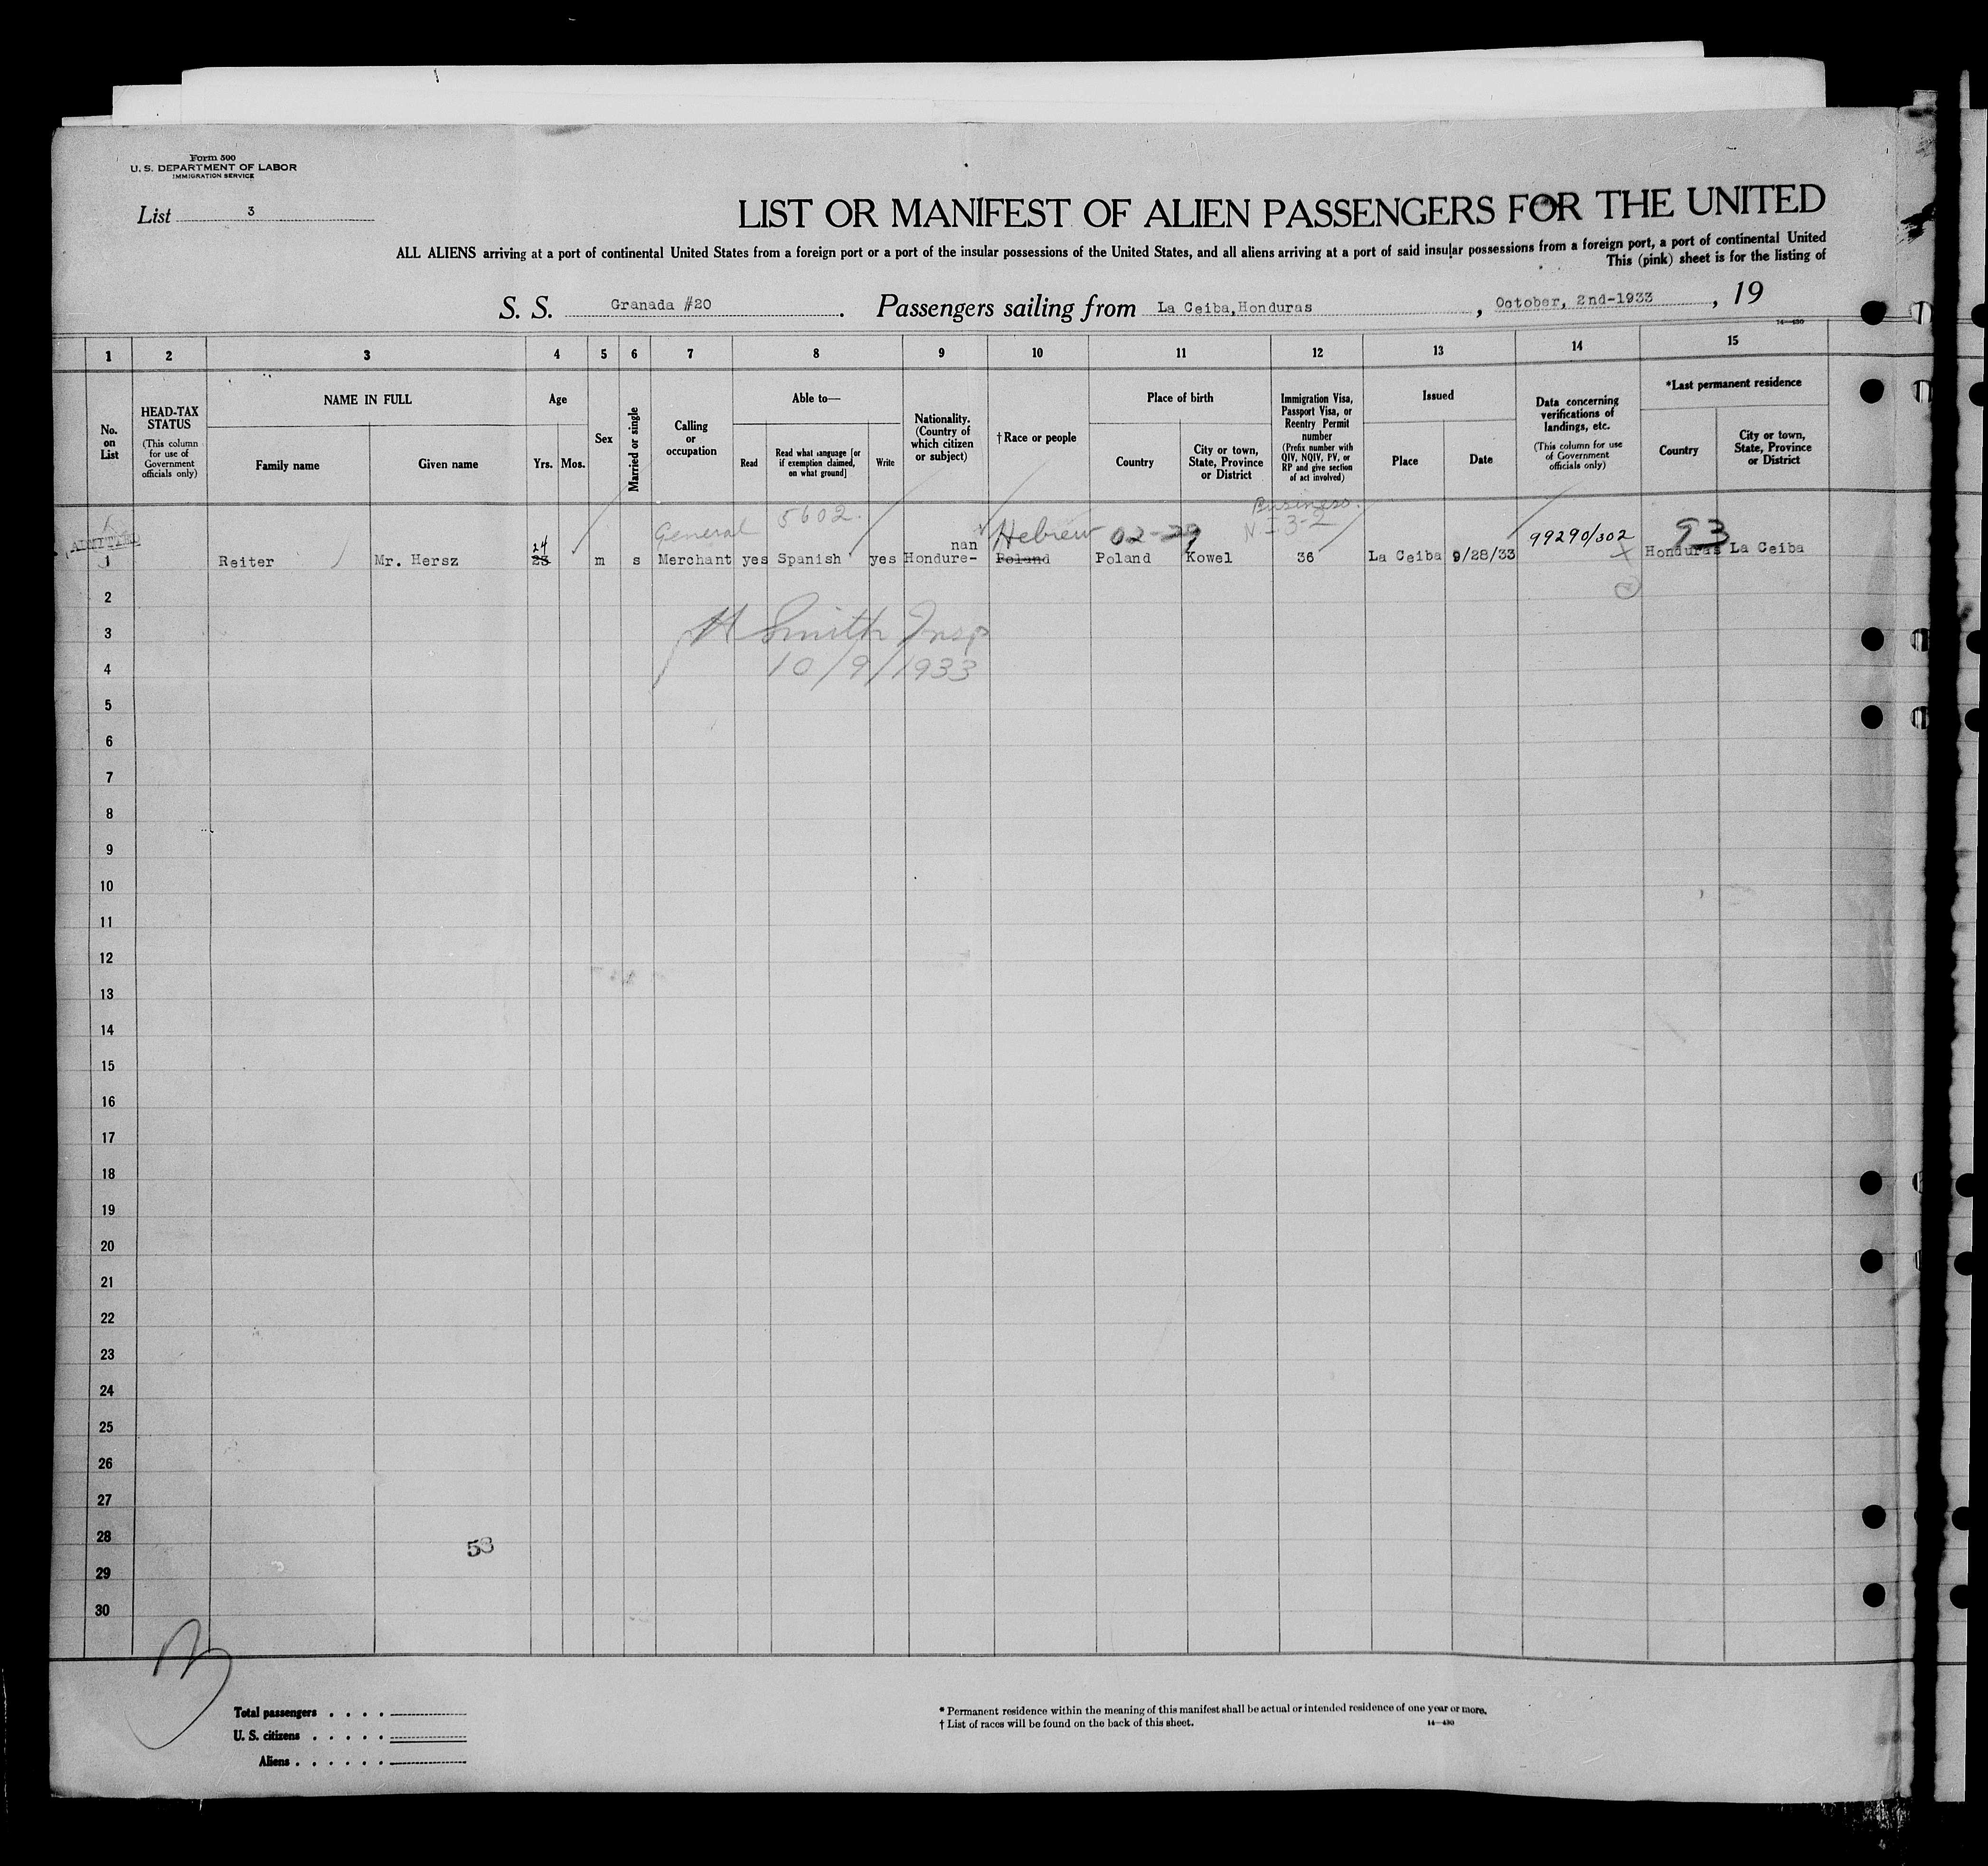 Form 500
U. S. DEPARTMENT OF LABOR
IMMIGRATION SERVICE
List 3
LIST OR MANIFEST OF ALIEN PASSENGERS FOR THE UNITED
ALL ALIENS arriving at a port of continental United States from a foreign port or a port of the insular possessions of the United States, and all aliens arriving at a port of said insular possessions from a foreign port, a port of continental United
This (pink) sheet is for the listing of
S. S. Granada #20 . Passengers sailing from La Ceiba, Honduras , October, 2nd-1933 , 19
14—430
1 2 3 4 5 6 7 8 9 10 11 12 13 14 15
No. on List
HEAD-TAX STATUS
(This column for use of Government officials only)
NAME IN FULL
Family name
Given name
Age
Yrs.
Mos.
Sex
Married or single
Calling or occupation
Able to—
Read
Read what language [or if exemption claimed, on what ground]
Write
Nationality. (Country of which citizen or subject)
†Race or people
Place of birth
Country
City or town, State, Province or District
Immigration Visa, Passport Visa, or Reentry Permit number
(Prefix number with QIV, NQIV, PV, or RP and give section of act involved)
Issued
Place
Date
Data concerning verifications of landings, etc.
(This column for use of Government officials only)
*Last permanent residence
Country
City or town, State, Province or District
5602
Business
General
Hebrew 02-29
N I 3-2
99290/302
93
ADMITTED
24
nan
1 Reiter Mr. Hersz 23 m s Merchant yes Spanish yes Hondure- Poland Poland Kowel 36 La Ceiba 9/28/33 Honduras La Ceiba
2
H Smith Insp
3
10/9/1933
4
5
6
7
8
9
10
11
12
13
14
15
16
17
18
19
20
21
22
23
24
25
26
27
28
53
29
30
Total passengers . . . .
U. S. citizens . . . . .
Aliens . . . . . .
* Permanent residence within the meaning of this manifest shall be actual or intended residence of one year or more.
† List of races will be found on the back of this sheet.
14—430